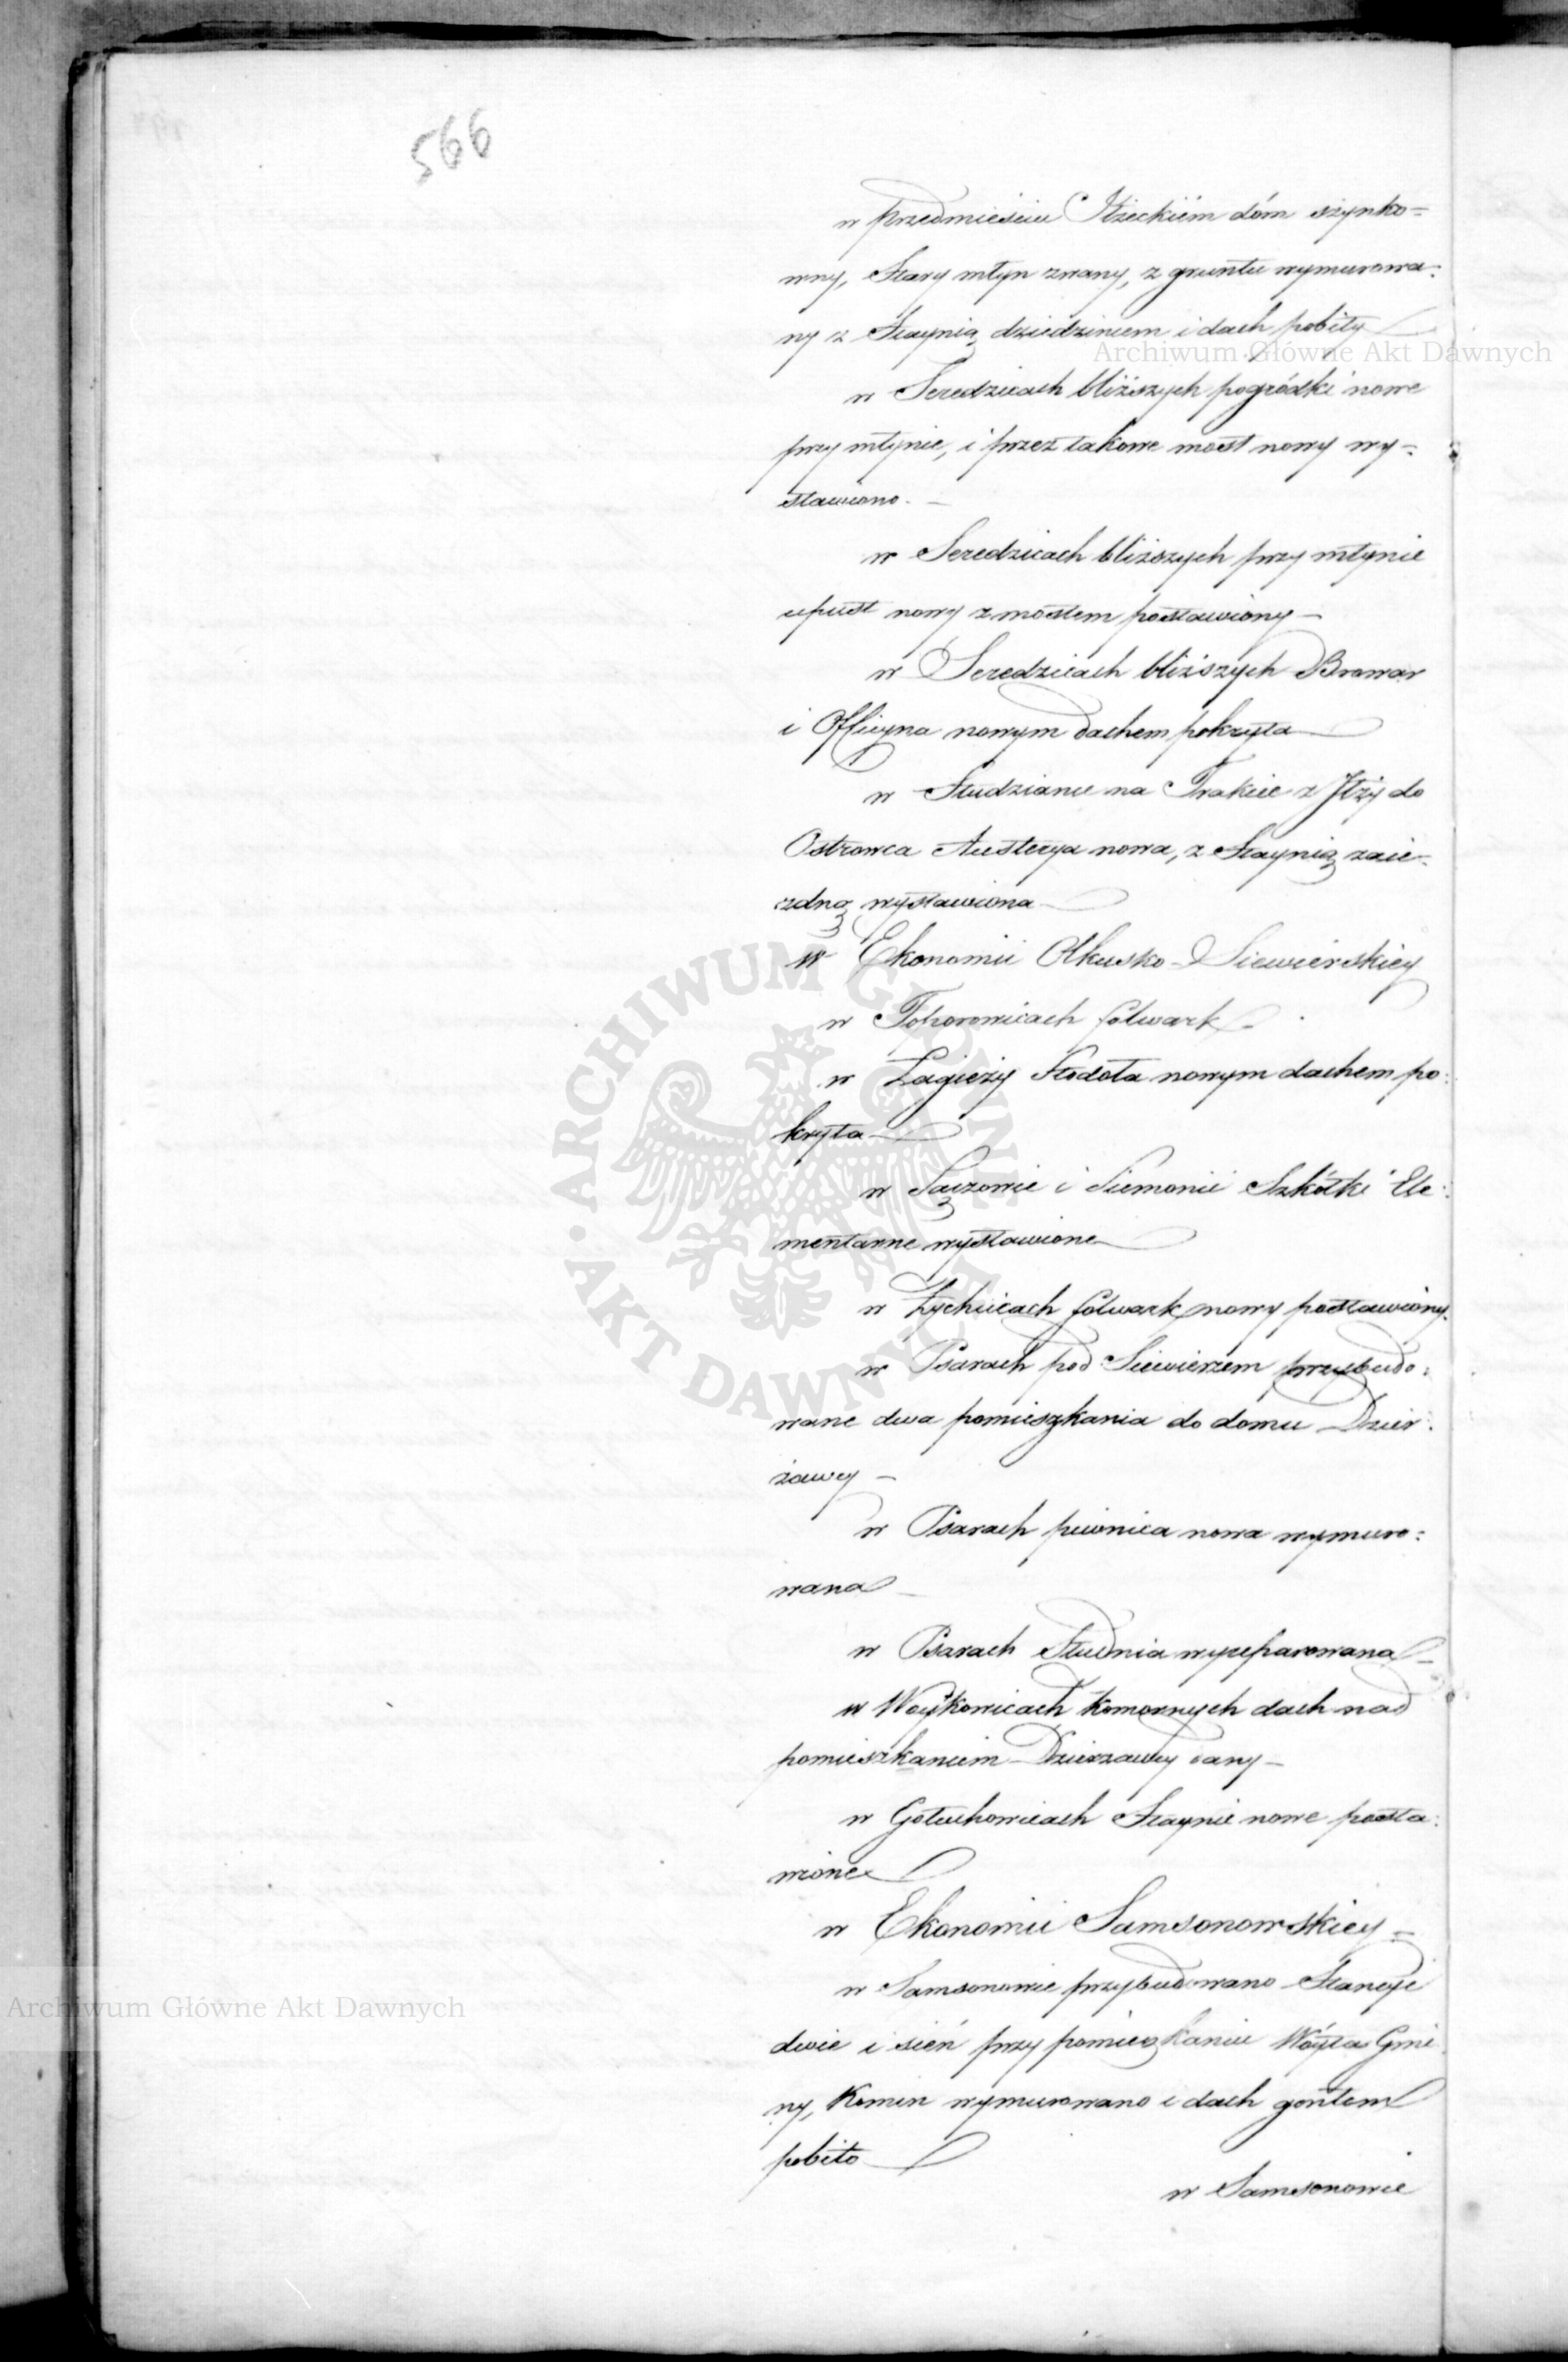 566
w przedmieściu Iłzeckiém dóm szynko=
wny, Stary młyn zwany, z gruntu wymurowa=
ny z Staynią dziedzincem i dach pobity
w Seredzicach bliższych pogródki nowe
przy młynie, i przez takowe most nowy wy=
stawiono. —
w Seredzicach bliższych przy młynie
upust nowy z mostem postawiony —
w Seredzicach bliższych Browar
i Officyna nowym dachem pokryta
w Studziance na Trakcie z Iłży do
Ostrowca Austerya nowa, z Staynią zaie=
zdną wystawiona
w Ekonomii Olkusko-Siewierskiey
w Toporowicach folwark
w Łagieży Stodoła nowym dachem po=
kryta
w Sączowie i Siemonii Szkółki Ele=
mentarne wystawione
w Żychcicach folwark nowy postawiony.
w Psarach pod Siewierzem przybudo=
wane dwa pomieszkania do domu Dzier=
żawcy —
w Psarach piwnica nowa wymuro=
wana —
w Psarach Studnia wyreparowana —
w Woykowicach Komornych dach nad
pomieszkaniem Dzierzawcy dany —
w Gołuchowicach Staynie nowe posta=
wione
w Ekonomii Samsonowskiey =
w Samsonowie przybudowano Stancye
dwie i sień przy pomieszkaniu Wóyta Gmi
ny, Komin wymurowano i dach gontem
pobito
w Samsonowie
Archiwum Główne Akt Dawnych
Archiwum Główne Akt Dawnych
ARCHIWUM GŁÓWNE AKT DAWNYCH